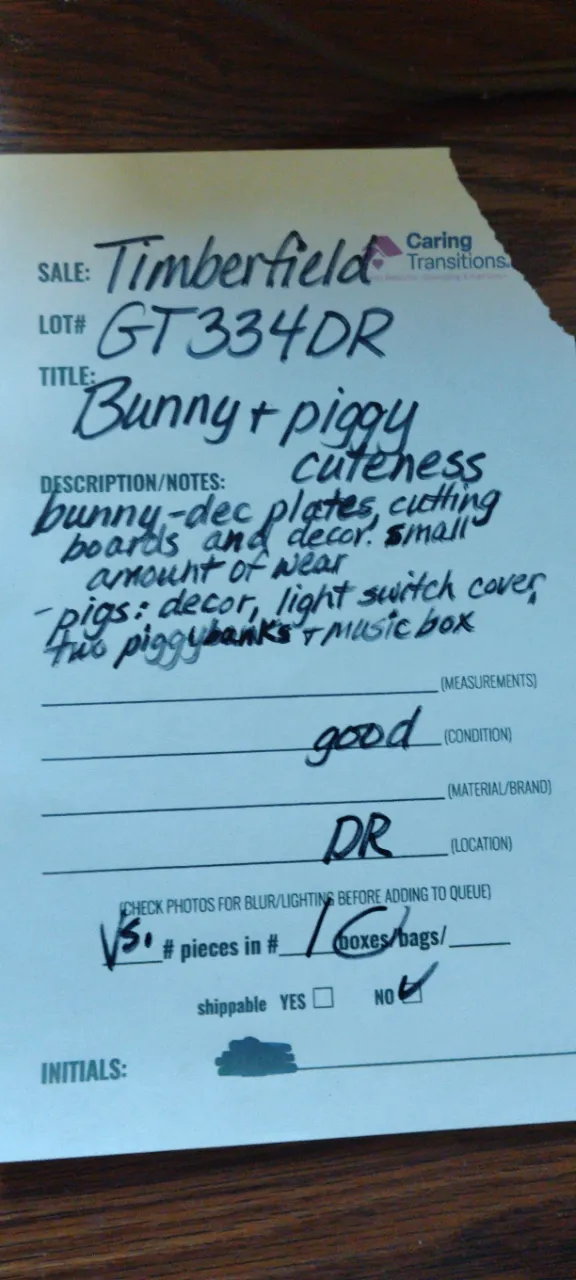 Caring
Transitions
SALE: Timberfield
LOT# GT334DR
TITLE:
Bunny + piggy
cuteness
DESCRIPTION/NOTES:
bunny-dec plates, cutting
boards and decor. small
amount of wear
- pigs: decor, light switch cover,
two piggybanks + music box
(MEASUREMENTS)
good (CONDITION)
(MATERIAL/BRAND)
DR (LOCATION)
(CHECK PHOTOS FOR BLUR/LIGHTING BEFORE ADDING TO QUEUE)
Vs. # pieces in # 1 boxes/bags/
shippable YES NO
INITIALS: